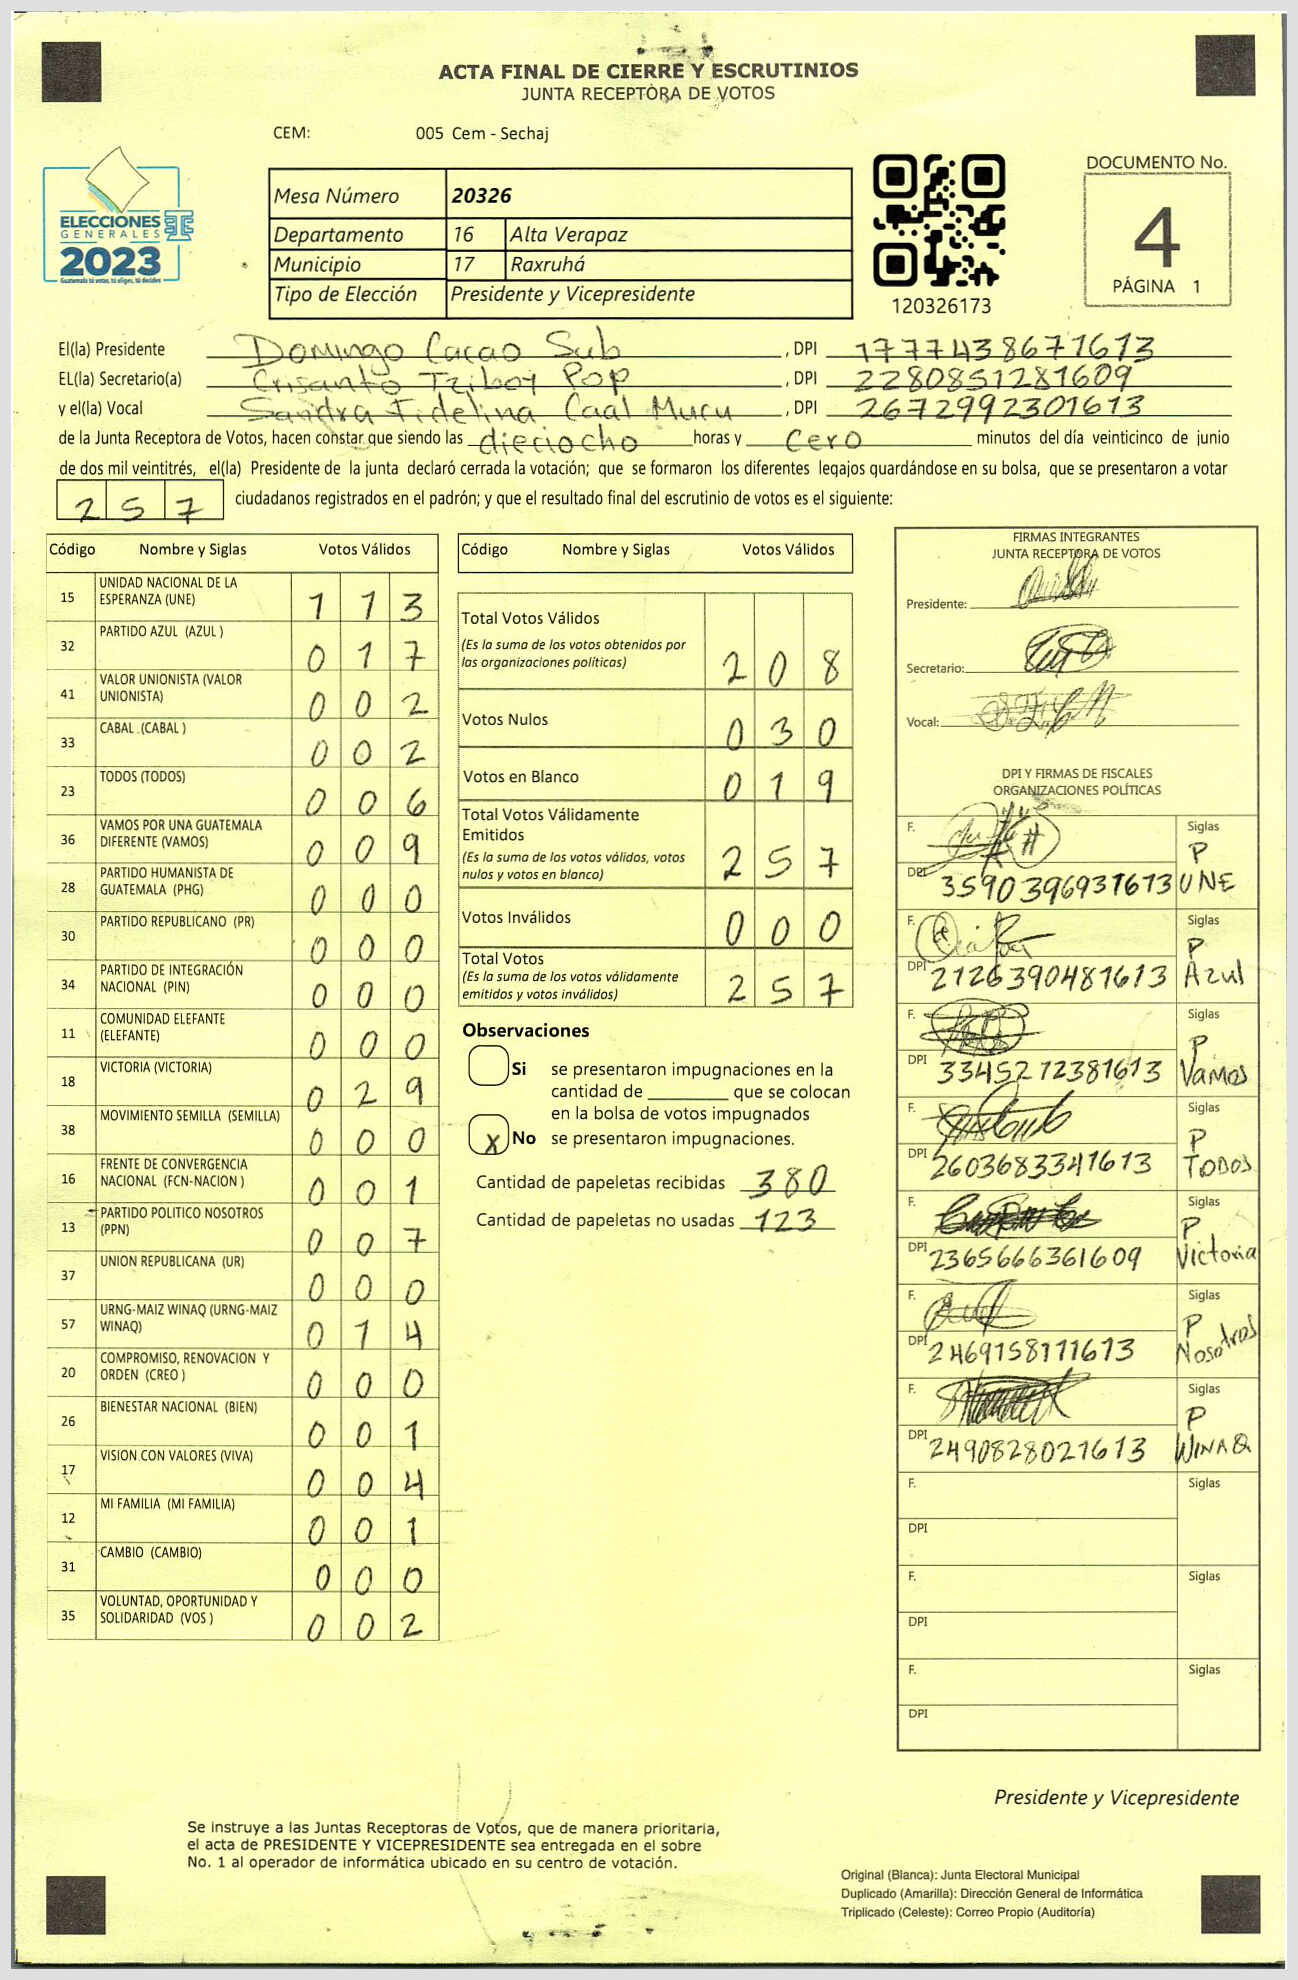 ACTA FINAL DE CIERRE Y ESCRUTINIOS
JUNTA RECEPTORA DE VOTOS
CEM: 005 Cem - Sechaj
ELECCIONES
GENERALES
2023
Guatemala tú votas, tú eliges, tú decides
Mesa Número 20326
Departamento 16 Alta Verapaz
Municipio 17 Raxruhá
Tipo de Elección Presidente y Vicepresidente
120326173
DOCUMENTO No.
4
PÁGINA 1
El(la) Presidente Domingo Cacao Sub , DPI 1777438671613
EL(la) Secretario(a) Crisanto Tziboy Pop , DPI 2280851281609
y el(la) Vocal Sandra Fidelina Caal Mucu , DPI 2672992301613
de la Junta Receptora de Votos, hacen constar que siendo las dieciocho horas y cero minutos del día veinticinco de junio
de dos mil veintitrés, el(la) Presidente de la junta declaró cerrada la votación; que se formaron los diferentes legajos guardándose en su bolsa, que se presentaron a votar
257 ciudadanos registrados en el padrón; y que el resultado final del escrutinio de votos es el siguiente:
Código Nombre y Siglas Votos Válidos
15 UNIDAD NACIONAL DE LA ESPERANZA (UNE) 113
32 PARTIDO AZUL (AZUL ) 017
41 VALOR UNIONISTA (VALOR UNIONISTA) 002
33 CABAL .(CABAL ) 002
23 TODOS (TODOS) 006
36 VAMOS POR UNA GUATEMALA DIFERENTE (VAMOS) 009
28 PARTIDO HUMANISTA DE GUATEMALA (PHG) 000
30 PARTIDO REPUBLICANO (PR) 000
34 PARTIDO DE INTEGRACIÓN NACIONAL (PIN) 000
11 COMUNIDAD ELEFANTE (ELEFANTE) 000
18 VICTORIA (VICTORIA) 029
38 MOVIMIENTO SEMILLA (SEMILLA) 000
16 FRENTE DE CONVERGENCIA NACIONAL (FCN-NACION ) 001
13 PARTIDO POLITICO NOSOTROS (PPN) 007
37 UNION REPUBLICANA (UR) 000
57 URNG-MAIZ WINAQ (URNG-MAIZ WINAQ) 014
20 COMPROMISO, RENOVACION Y ORDEN (CREO ) 000
26 BIENESTAR NACIONAL (BIEN) 001
17 VISION CON VALORES (VIVA) 004
12 MI FAMILIA (MI FAMILIA) 001
31 CAMBIO (CAMBIO) 000
35 VOLUNTAD, OPORTUNIDAD Y SOLIDARIDAD (VOS ) 002
Código Nombre y Siglas Votos Válidos
Total Votos Válidos
(Es la suma de los votos obtenidos por
las organizaciones políticas) 208
Votos Nulos 030
Votos en Blanco 019
Total Votos Válidamente
Emitidos
(Es la suma de los votos válidos, votos
nulos y votos en blanco) 257
Votos Inválidos 000
Total Votos
(Es la suma de los votos válidamente
emitidos y votos inválidos) 257
Observaciones
Si se presentaron impugnaciones en la
cantidad de ________ que se colocan
en la bolsa de votos impugnados
X No se presentaron impugnaciones.
Cantidad de papeletas recibidas 380
Cantidad de papeletas no usadas 123
FIRMAS INTEGRANTES
JUNTA RECEPTORA DE VOTOS
Presidente:
Secretario:
Vocal:
DPI Y FIRMAS DE FISCALES
ORGANIZACIONES POLÍTICAS
F. Siglas
DPI 3590396931613 P UNE
F. Siglas
DPI 2126390481613 P Azul
F. Siglas
DPI 3345272381613 P Vamos
F. Siglas
DPI 2603683341613 P TODOS
F. Siglas
DPI 2365666361609 P Victoria
F. Siglas
DPI 2469158111613 P Nosotros
F. Siglas
DPI 2490828021613 P WINAQ
F. Siglas
DPI
F. Siglas
DPI
F. Siglas
DPI
Presidente y Vicepresidente
Se instruye a las Juntas Receptoras de Votos, que de manera prioritaria,
el acta de PRESIDENTE Y VICEPRESIDENTE sea entregada en el sobre
No. 1 al operador de informática ubicado en su centro de votación.
Original (Blanca): Junta Electoral Municipal
Duplicado (Amarilla): Dirección General de Informática
Triplicado (Celeste): Correo Propio (Auditoría)